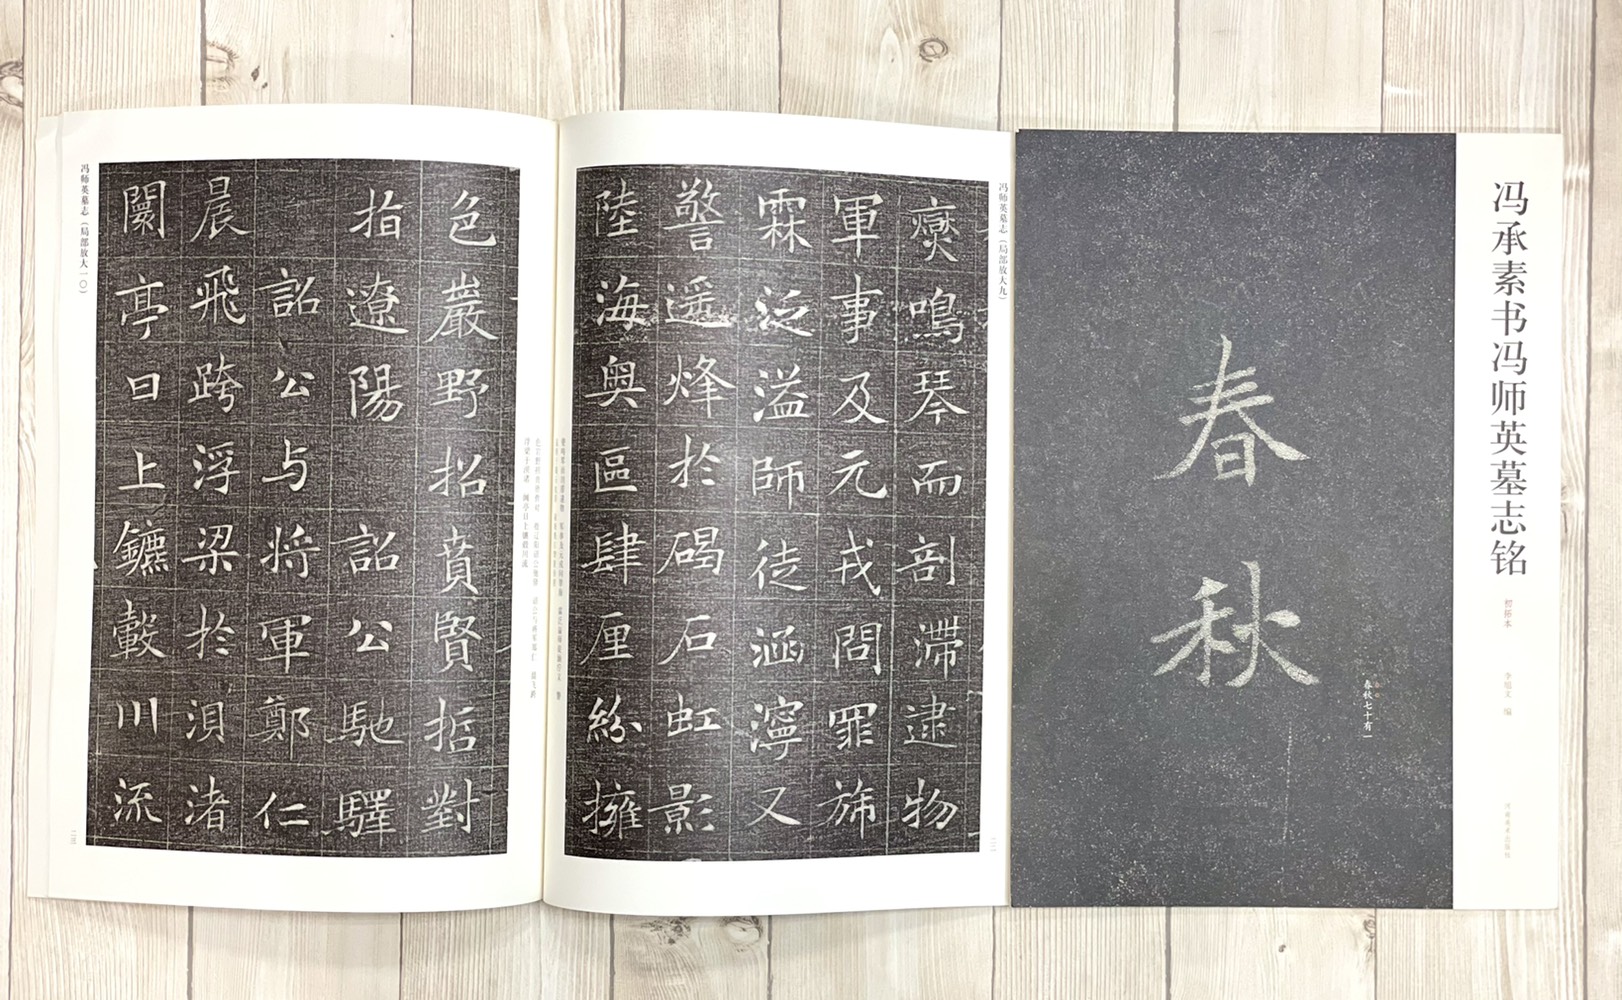 冯承素书冯师英墓志铭
初拓本
编
河南美术出版社
春秋
春秋七十有一
冯师英墓志（局部放大九）
鳴琴而剖滞逮物
軍事及元戎問罪旆
霖泛溢師徒涵濘又
警遥烽於碣石虹影
陸海奥區肆厘紛擁
色巖野招賁賢哲對
指遼陽 詔公馳驛
詔公与將軍鄭仁
晨飛跨浮梁於浿渚
闃亭日上鑣轂川流
冯师英墓志（局部放大一〇）